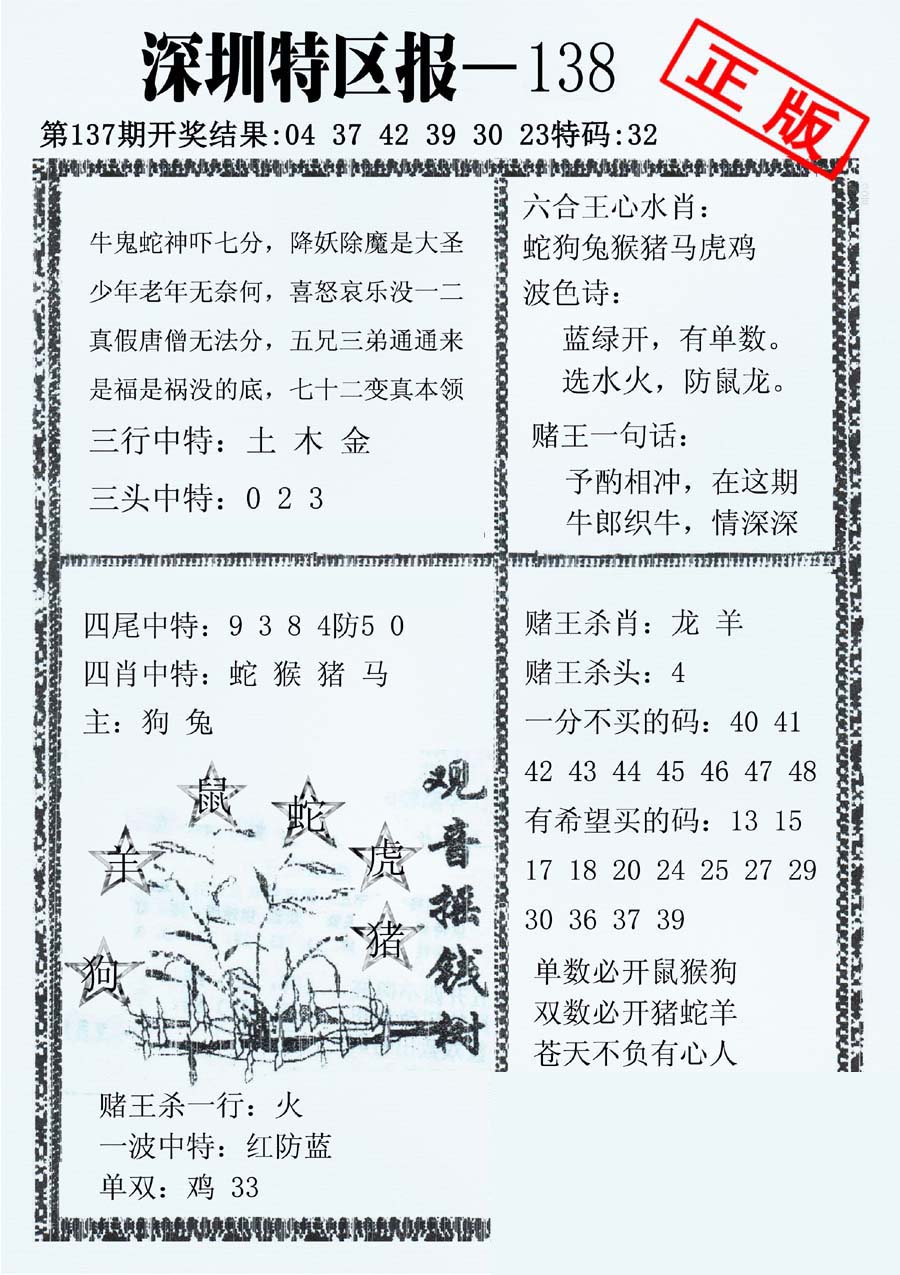 深圳特区报—138
正版
第137期开奖结果:04 37 42 39 30 23特码:32
牛鬼蛇神吓七分，降妖除魔是大圣
少年老年无奈何，喜怒哀乐没一二
真假唐僧无法分，五兄三弟通通来
是福是祸没的底，七十二变真本领
三行中特：土 木 金
三头中特：0 2 3
六合王心水肖：
蛇狗兔猴猪马虎鸡
波色诗：
蓝绿开，有单数。
选水火，防鼠龙。
赌王一句话：
予酌相冲，在这期
牛郎织牛，情深深
四尾中特：9 3 8 4防5 0
四肖中特：蛇 猴 猪 马
主：狗 兔
鼠
蛇
羊
虎
猪
狗
观音摇钱树
赌王杀一行：火
一波中特：红防蓝
单双：鸡 33
赌王杀肖：龙 羊
赌王杀头：4
一分不买的码：40 41
42 43 44 45 46 47 48
有希望买的码：13 15
17 18 20 24 25 27 29
30 36 37 39
单数必开鼠猴狗
双数必开猪蛇羊
苍天不负有心人